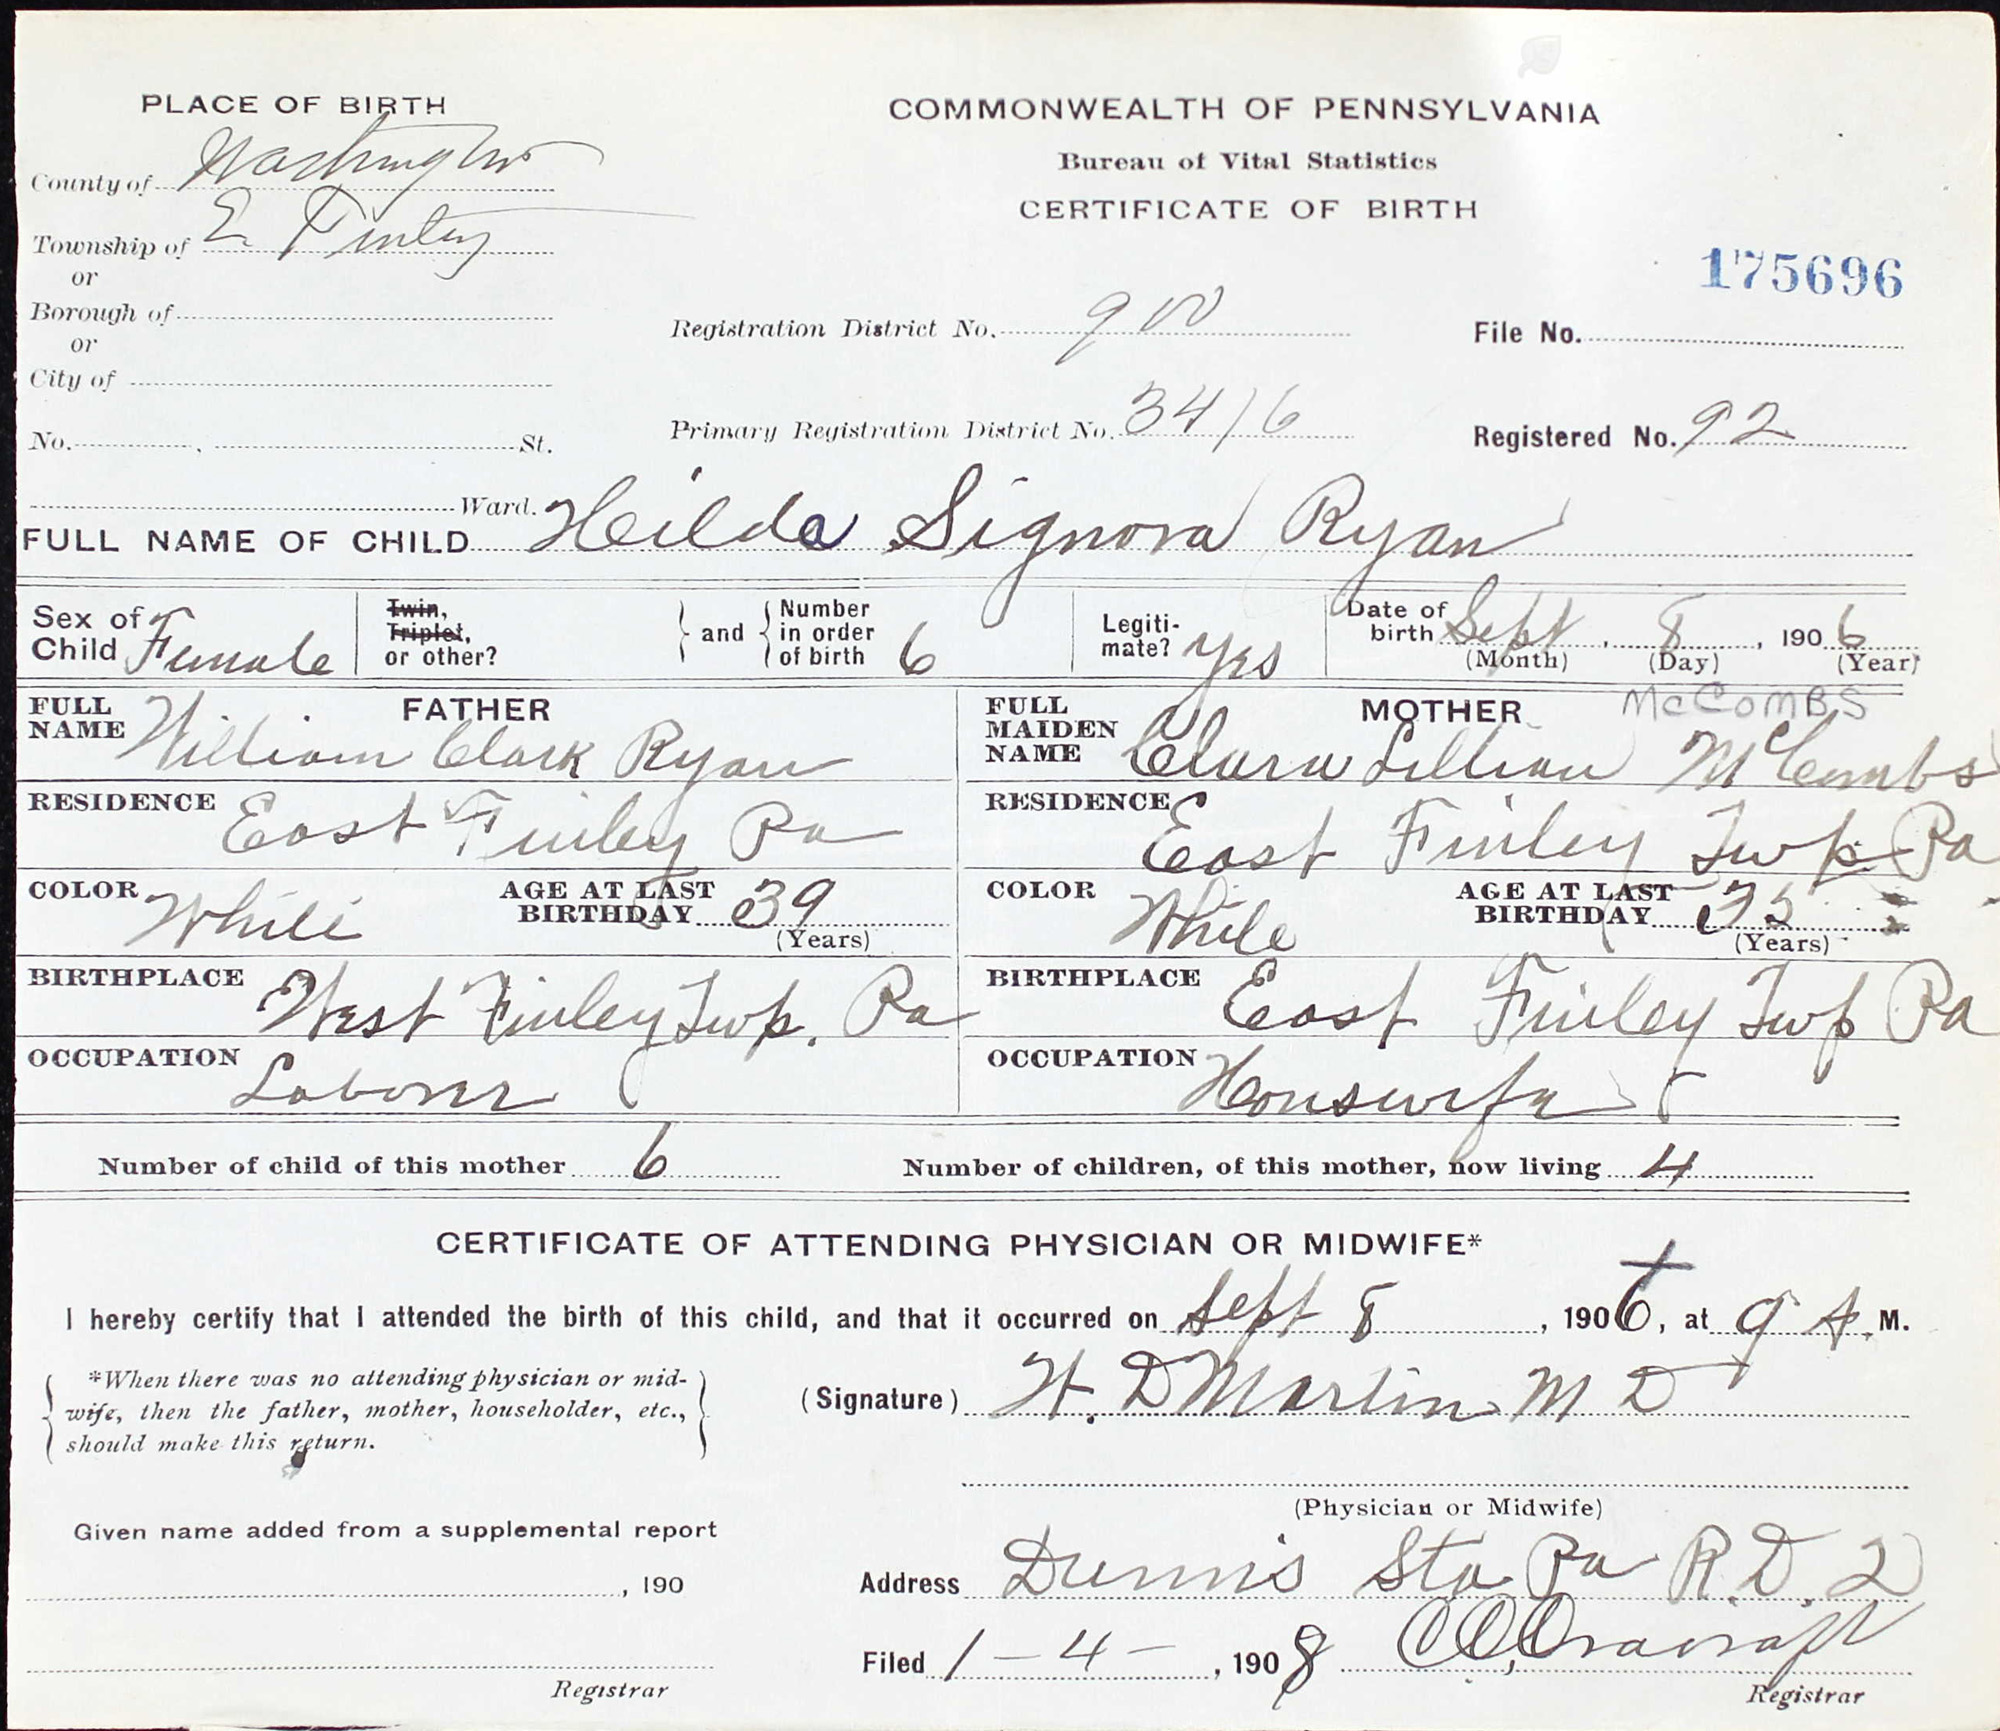 PLACE OF BIRTH
COMMONWEALTH OF PENNSYLVANIA
Bureau of Vital Statistics
CERTIFICATE OF BIRTH
County of Washington
Township of E. Finley
or
Borough of
or
City of
No. , St.
Ward.
175696
Registration District No. 900
File No.
Primary Registration District No. 3416
Registered No. 92
FULL NAME OF CHILD Heilda Signora Ryan
Sex of Child Female
Twin, Triplet, or other?
and
Number in order of birth 6
Legitimate? Yes
Date of birth Sept, 8, 1906
(Month) (Day) (Year)
FATHER
FULL NAME William Clark Ryan
MOTHER McCOMBS
FULL MAIDEN NAME Clara Lillian McCombs
RESIDENCE East Finley Pa
RESIDENCE East Finley Twp Pa
COLOR White
AGE AT LAST BIRTHDAY 39
(Years)
COLOR White
AGE AT LAST BIRTHDAY
(Years)
BIRTHPLACE West Finley Twp. Pa
BIRTHPLACE East Finley Twp Pa
OCCUPATION Laborer
OCCUPATION Housewife
Number of child of this mother 6
Number of children, of this mother, now living 4
CERTIFICATE OF ATTENDING PHYSICIAN OR MIDWIFE*
I hereby certify that I attended the birth of this child, and that it occurred on Sept 8, 1906, at 9 A.M.
*When there was no attending physician or mid-
wife, then the father, mother, householder, etc.,
should make this return.
(Signature) H. D Martin M D
(Physician or Midwife)
Given name added from a supplemental report
, 190
Registrar
Address Dunns Sta Pa R.D. 2
Filed 1-4-, 1908
Registrar